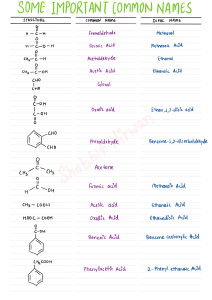 SOME IMPORTANT COMMON NAMES
STRUCTURE COMMON NAME IUPAC NAME
H-C-H Formaldehyde Methanal
H-C-O-H Formic Acid Methanoic Acid
CH₃-C-H Acetaldehyde Ethanal
CH₃-C-OH Acetic Acid Ethanoic Acid
CHO
CHO Glyoxal
C-OH
C-OH Oxalic acid Ethan-1,2-dioic acid
CHO
CHO Phthaldehyde Benzene-1,2-dicarbaldehyde
O
C
CH₃ CH₃ Acetone
H-C-OH Formic acid Methanoic Acid
CH₃-COOH Acetic acid Ethanoic Acid
HOOC-COOH Oxalic Acid Ethanedioic Acid
C-OH
Benzoic Acid Benzene Carboxylic Acid
CH₂COOH
Phenylacetic Acid 2-Phenyl ethanoic Acid